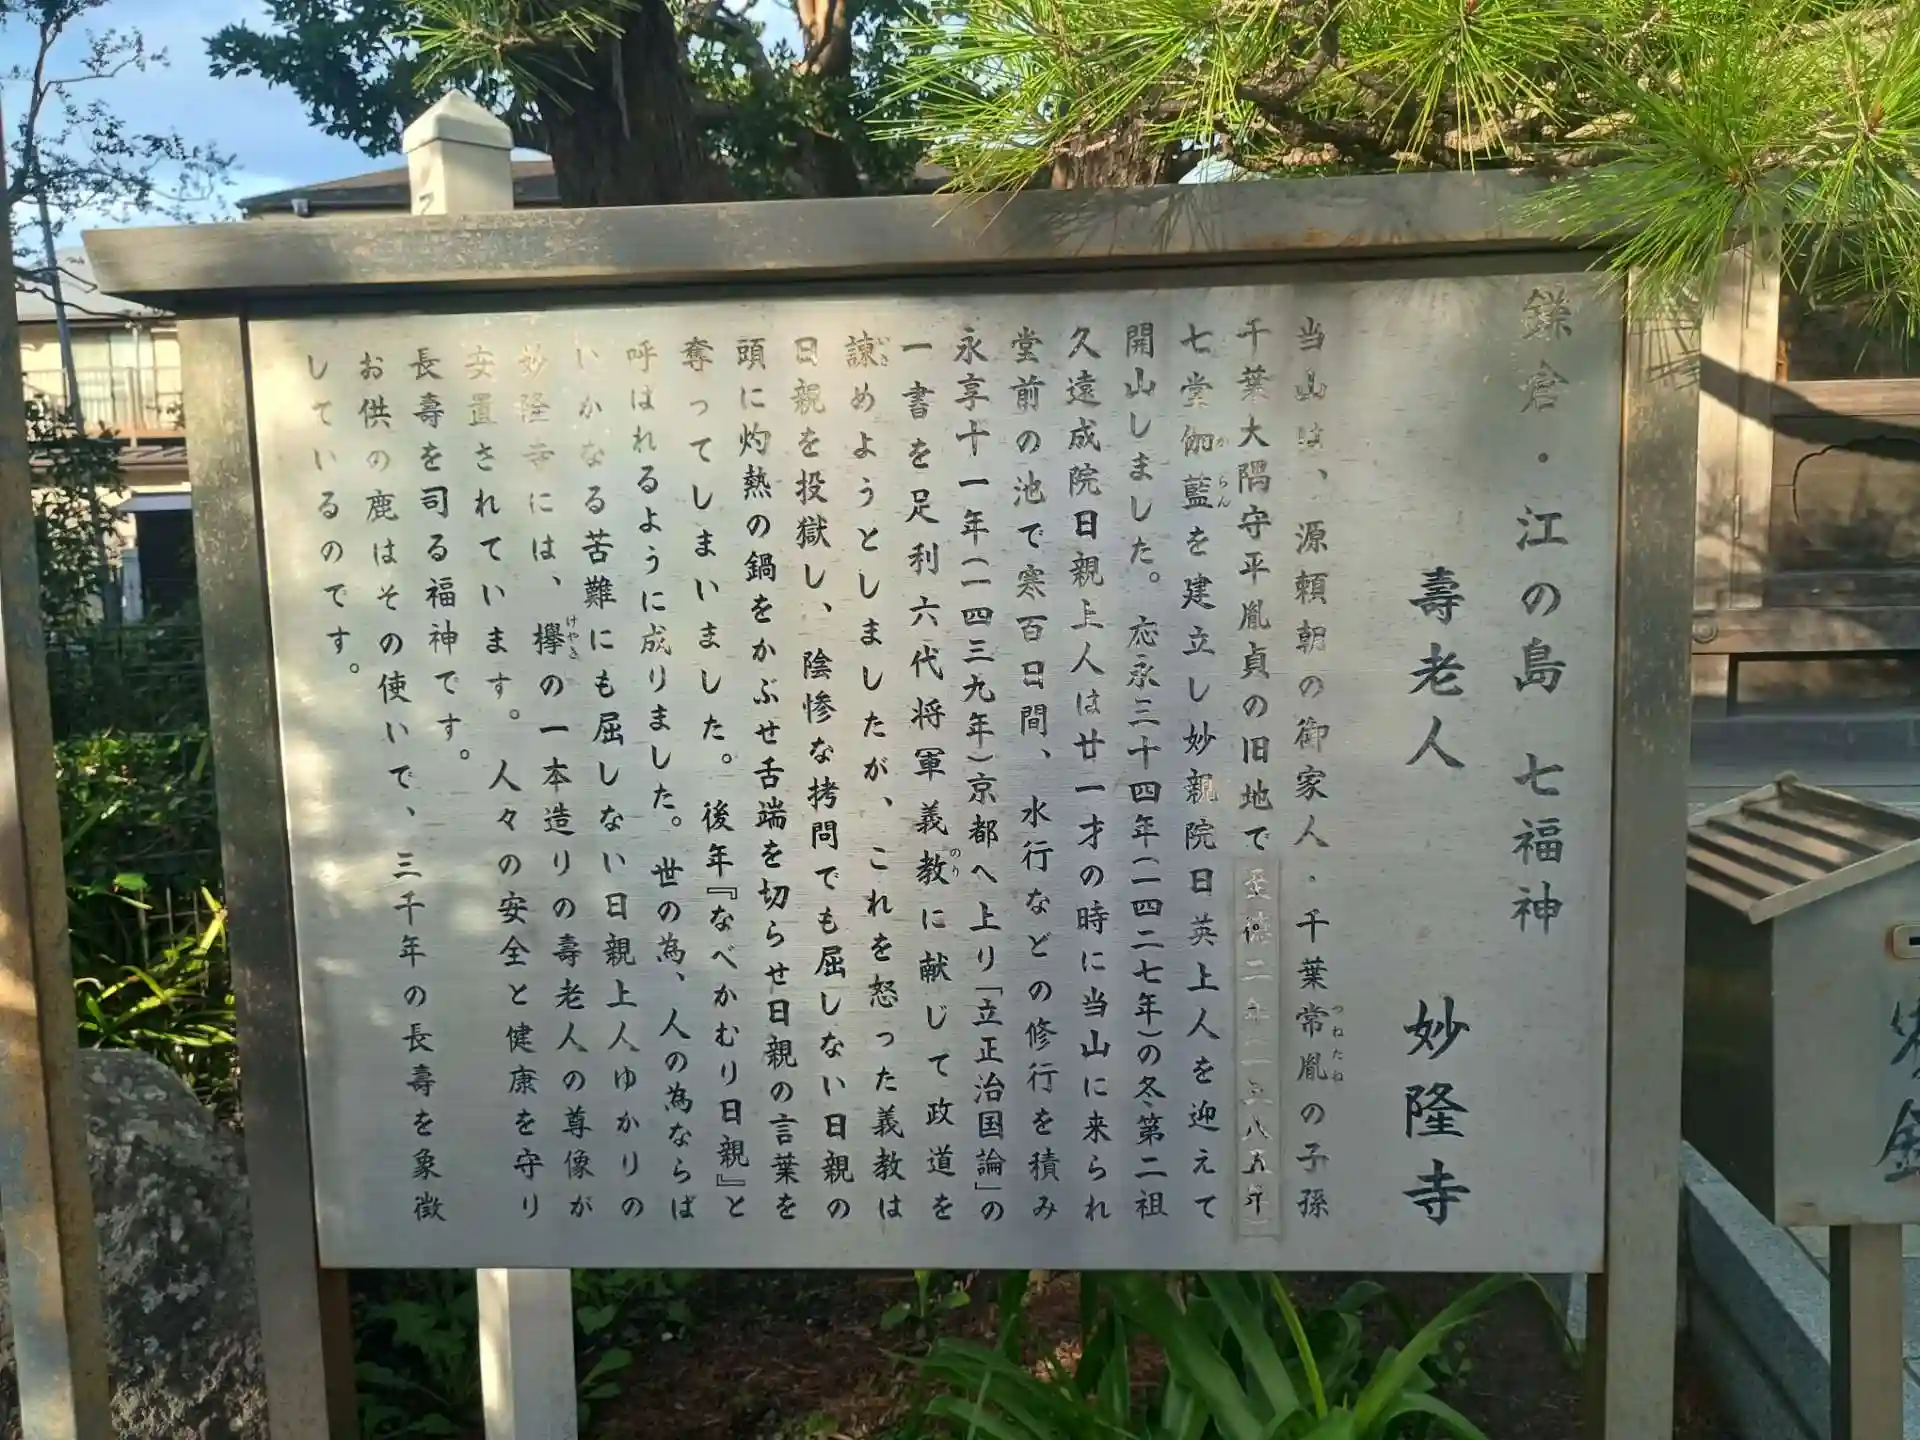 鎌倉・江の島 七福神
壽老人 妙隆寺
当山は、源頼朝の御家人・千葉常胤の子孫
つねたね
千葉大隅守平胤貞の旧地で至徳二年(一三八五年)
七堂伽藍を建立し妙親院日英上人を迎えて
がらん
開山しました。応永三十四年(一四二七年)の冬第二祖
久遠成院日親上人は廿一才の時に当山に来られ
堂前の池で寒百日間、水行などの修行を積み
永享十一年(一四三九年)京都へ上り「立正治国論」の
一書を足利六代将軍義教に献じて政道を
のり
諌めようとしましたが、これを怒った義教は
いさ
日親を投獄し、陰惨な拷問でも屈しない日親の
頭に灼熱の鍋をかぶせ舌端を切らせ日親の言葉を
奪ってしまいました。後年『なべかむり日親』と
呼はれるように成りました。世の為、人の為ならば
いかなる苦難にも屈しない日親上人ゆかりの
妙隆寺には、欅の一本造りの壽老人の尊像が
けやき
安置されています。人々の安全と健康を守り
長壽を司る福神です。
お供の鹿はその使いで、三千年の長壽を象徴
しているのです。